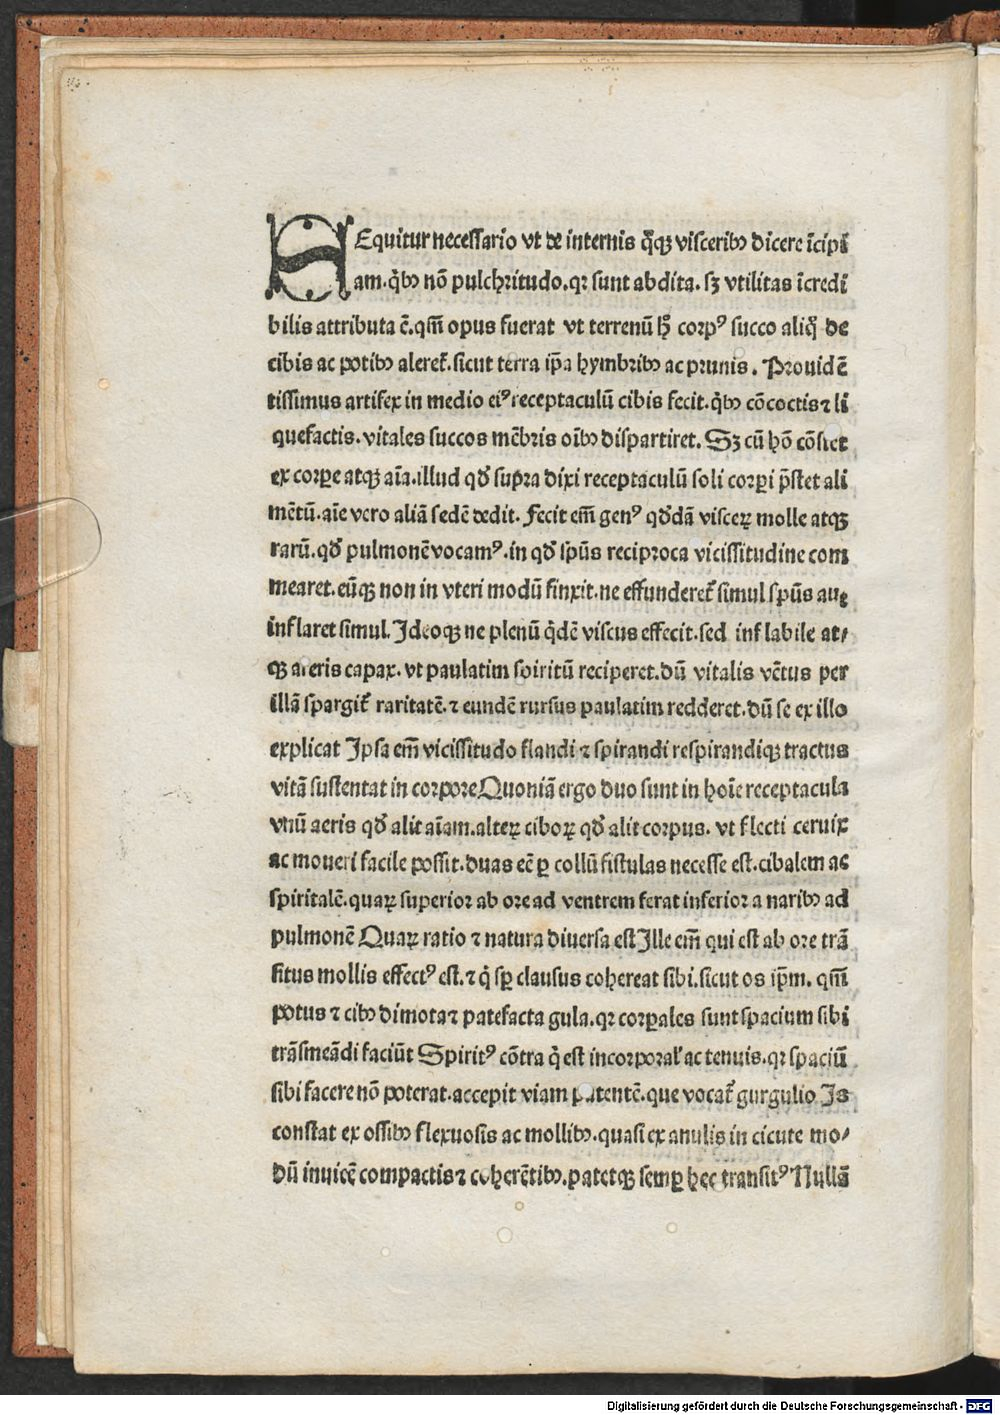 SEquitur necessario vt de internis q̃qꝫ visceribꝰ dicere ĩcipi
am. q̃bꝰ nõ pulchritudo. qꝛ sunt abdita. sꝫ vtilitas ĩcredi
bilis attributa ẽ. qm̃ opus fuerat vt terrenũ h̃ corpꝰ succo aliq̃ de
cibis ac potibꝰ aleret̃. sicut terra ip̃a hymbribꝰ ac prunis. Prouidẽ
tissimus artifex in medio eiꝰ receptaculũ cibis fecit. q̃bꝰ cõcoctis ⁊ li
quefactis. vitales succos mẽbris oĩbꝰ dispartiret. Sꝫ cũ hõ cõstet
ex corpꝑe atqꝫ aĩa. illud qd̃ supra dixi receptaculũ soli corpꝑi p̃stet ali
mẽtũ. aĩe vero aliã sedẽ dedit. Fecit em̃ genꝰ qd̃dã viscerꝝ molle atqꝫ
rarũ. qd̃ pulmonẽ vocamꝰ. in qd̃ sp̃us reciproca vicissitudine com
mearet. eũqꝫ non in vteri modũ finxit. ne effunderet̃ simul sp̃us aut
inflaret simul. Ideoqꝫ ne plenũ q̃dẽ viscus effecit. sed inflabile at⸗
qꝫ aeris capax. vt paulatim spiritũ reciperet. dũ vitalis vẽtus per
illã spargit̃ raritatẽ. ⁊ eundẽ rursus paulatim redderet. dũ se ex illo
explicat Ipsa em̃ vicissitudo flandi ⁊ spirandi respirandiqꝫ tractus
vitã sustentat in corpore Quoniã ergo duo sunt in hoĩe receptacula
vnũ aeris qd̃ alit aĩam. alterꝝ ciborꝝ qd̃ alit corpus. vt flecti ceruix
ac moueri facile possit. duas eẽ ꝑ collũ fistulas necesse est. cibalem ac
spiritalẽ. quarꝝ superior ab ore ad ventrem ferat inferior a naribꝰ ad
pulmonẽ Quarꝝ ratio ⁊ natura diuersa est Ille em̃ qui est ab ore trã
situs mollis effectꝰ est. ⁊ q̃ sꝑ clausus cohereat sibi. sicut os ip̃m. qm̃
potus ⁊ cibꝰ dimota ⁊ patefacta gula. qꝛ corꝑales sunt spacium sibi
trãsmeãdi faciũt Spiritꝰ cõtra q̃ est incorporal̃ ac tenuis. qꝛ spaciũ
sibi facere nõ poterat. accepit viam patentẽ. que vocat̃ gurgulio Is
constat ex ossibꝰ flexuosis ac mollibꝰ. quasi ex anulis in cicute mo⸗
dũ inuicẽ compactis ⁊ coherẽtibꝰ. patetqꝫ semꝑ hec transitꝰ Nullã
Digitalisierung gefördert durch die Deutsche Forschungsgemeinschaft - DFG